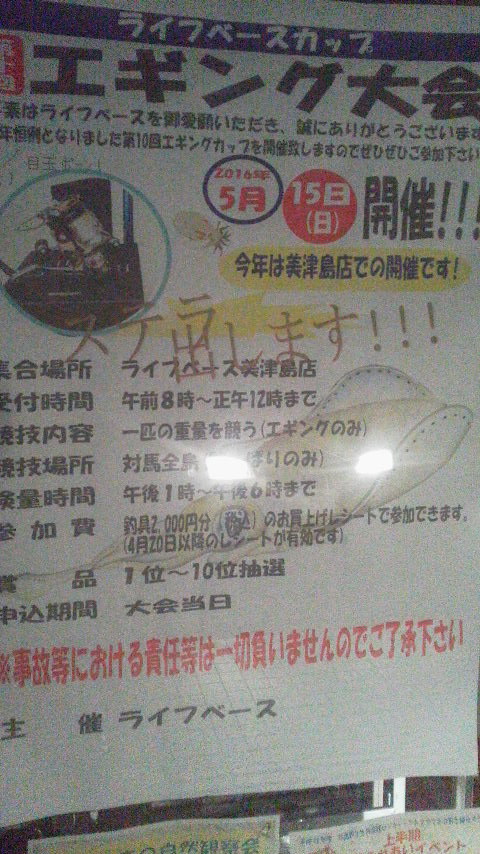 ライフベースカップ
エギング大会
素はライフベースを御愛顧いただき、誠にありがとうございます
年恒例となりました第10回エギングカップを開催致しますのでぜひぜひご参加下さい
2016年
5月
15日
(日)
開催!!!
今年は美津島店での開催です!
ステラ
出します!!!
集合場所 ライフベース美津島店
受付時間 午前8時～正午12時まで
競技内容 一匹の重量を競う(エギングのみ)
競技場所 対馬全島 ぱりのみ)
検量時間 午後1時～午後6時まで
参加費 釣具2,000円分(税込)のお買上げレシートで参加できます。
(4月20日以降のレシートが有効です)
賞品 1位～10位抽選
申込期間 大会当日
※事故等における責任等は一切負いませんのでご了承下さい
主催 ライフベース
の自然観察会
上半期
あいイベント